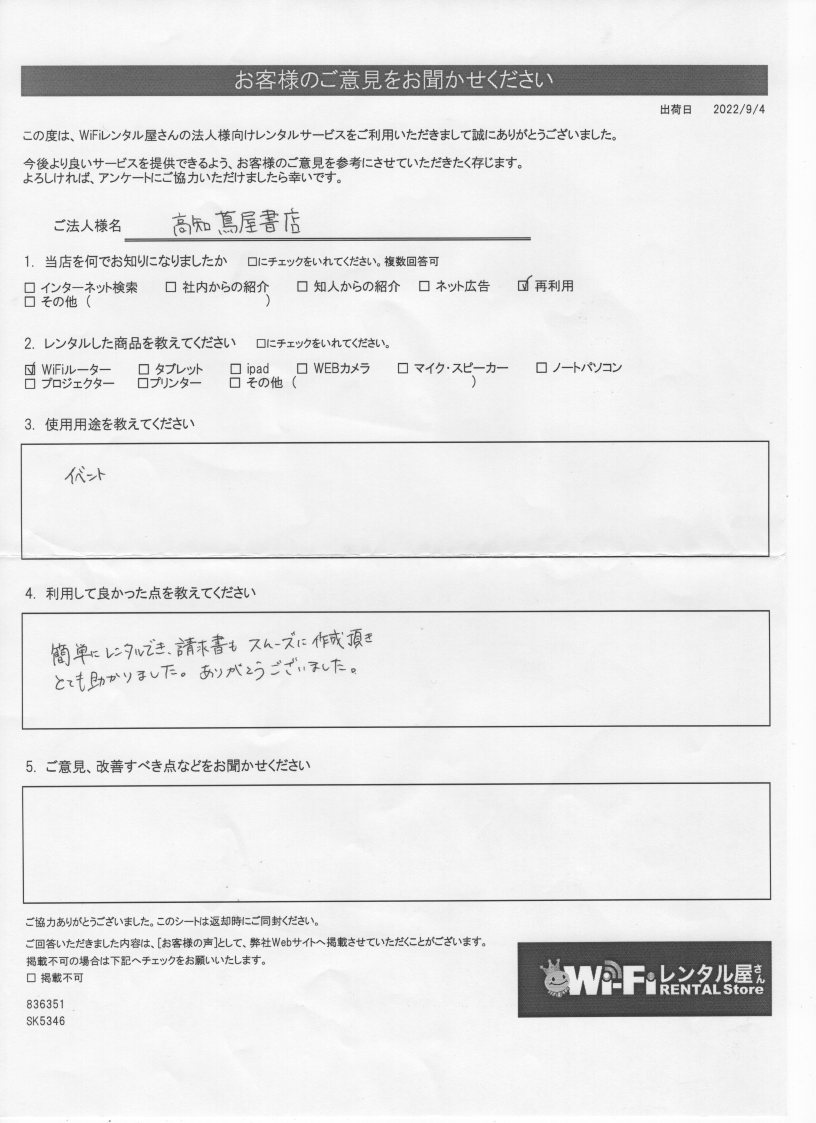 お客様のご意見をお聞かせください
出荷日 2022/9/4
この度は、WiFiレンタル屋さんの法人様向けレンタルサービスをご利用いただきまして誠にありがとうございました。
今後より良いサービスを提供できるよう、お客様のご意見を参考にさせていただきたく存じます。
よろしければ、アンケートにご協力いただけましたら幸いです。
ご法人様名 高知 蔦屋書店
1. 当店を何でお知りになりましたか □にチェックをいれてください。複数回答可
□ インターネット検索 □ 社内からの紹介 □ 知人からの紹介 □ ネット広告 ☑ 再利用
□ その他 ( )
2. レンタルした商品を教えてください □にチェックをいれてください。
☑ WiFiルーター □ タブレット □ ipad □ WEBカメラ □ マイク・スピーカー □ ノートパソコン
□ プロジェクター □プリンター □ その他 ( )
3. 使用用途を教えてください
イベント
4. 利用して良かった点を教えてください
簡単にレンタルでき、請求書もスムーズに作成頂き
とても助かりました。ありがとうございました。
5. ご意見、改善すべき点などをお聞かせください
ご協力ありがとうございました。このシートは返却時にご同封ください。
ご回答いただきました内容は、[お客様の声]として、弊社Webサイトへ掲載させていただくことがございます。
掲載不可の場合は下記へチェックをお願いいたします。
□ 掲載不可
836351
SK5346
Wi-Fiレンタル屋さん
RENTAL Store